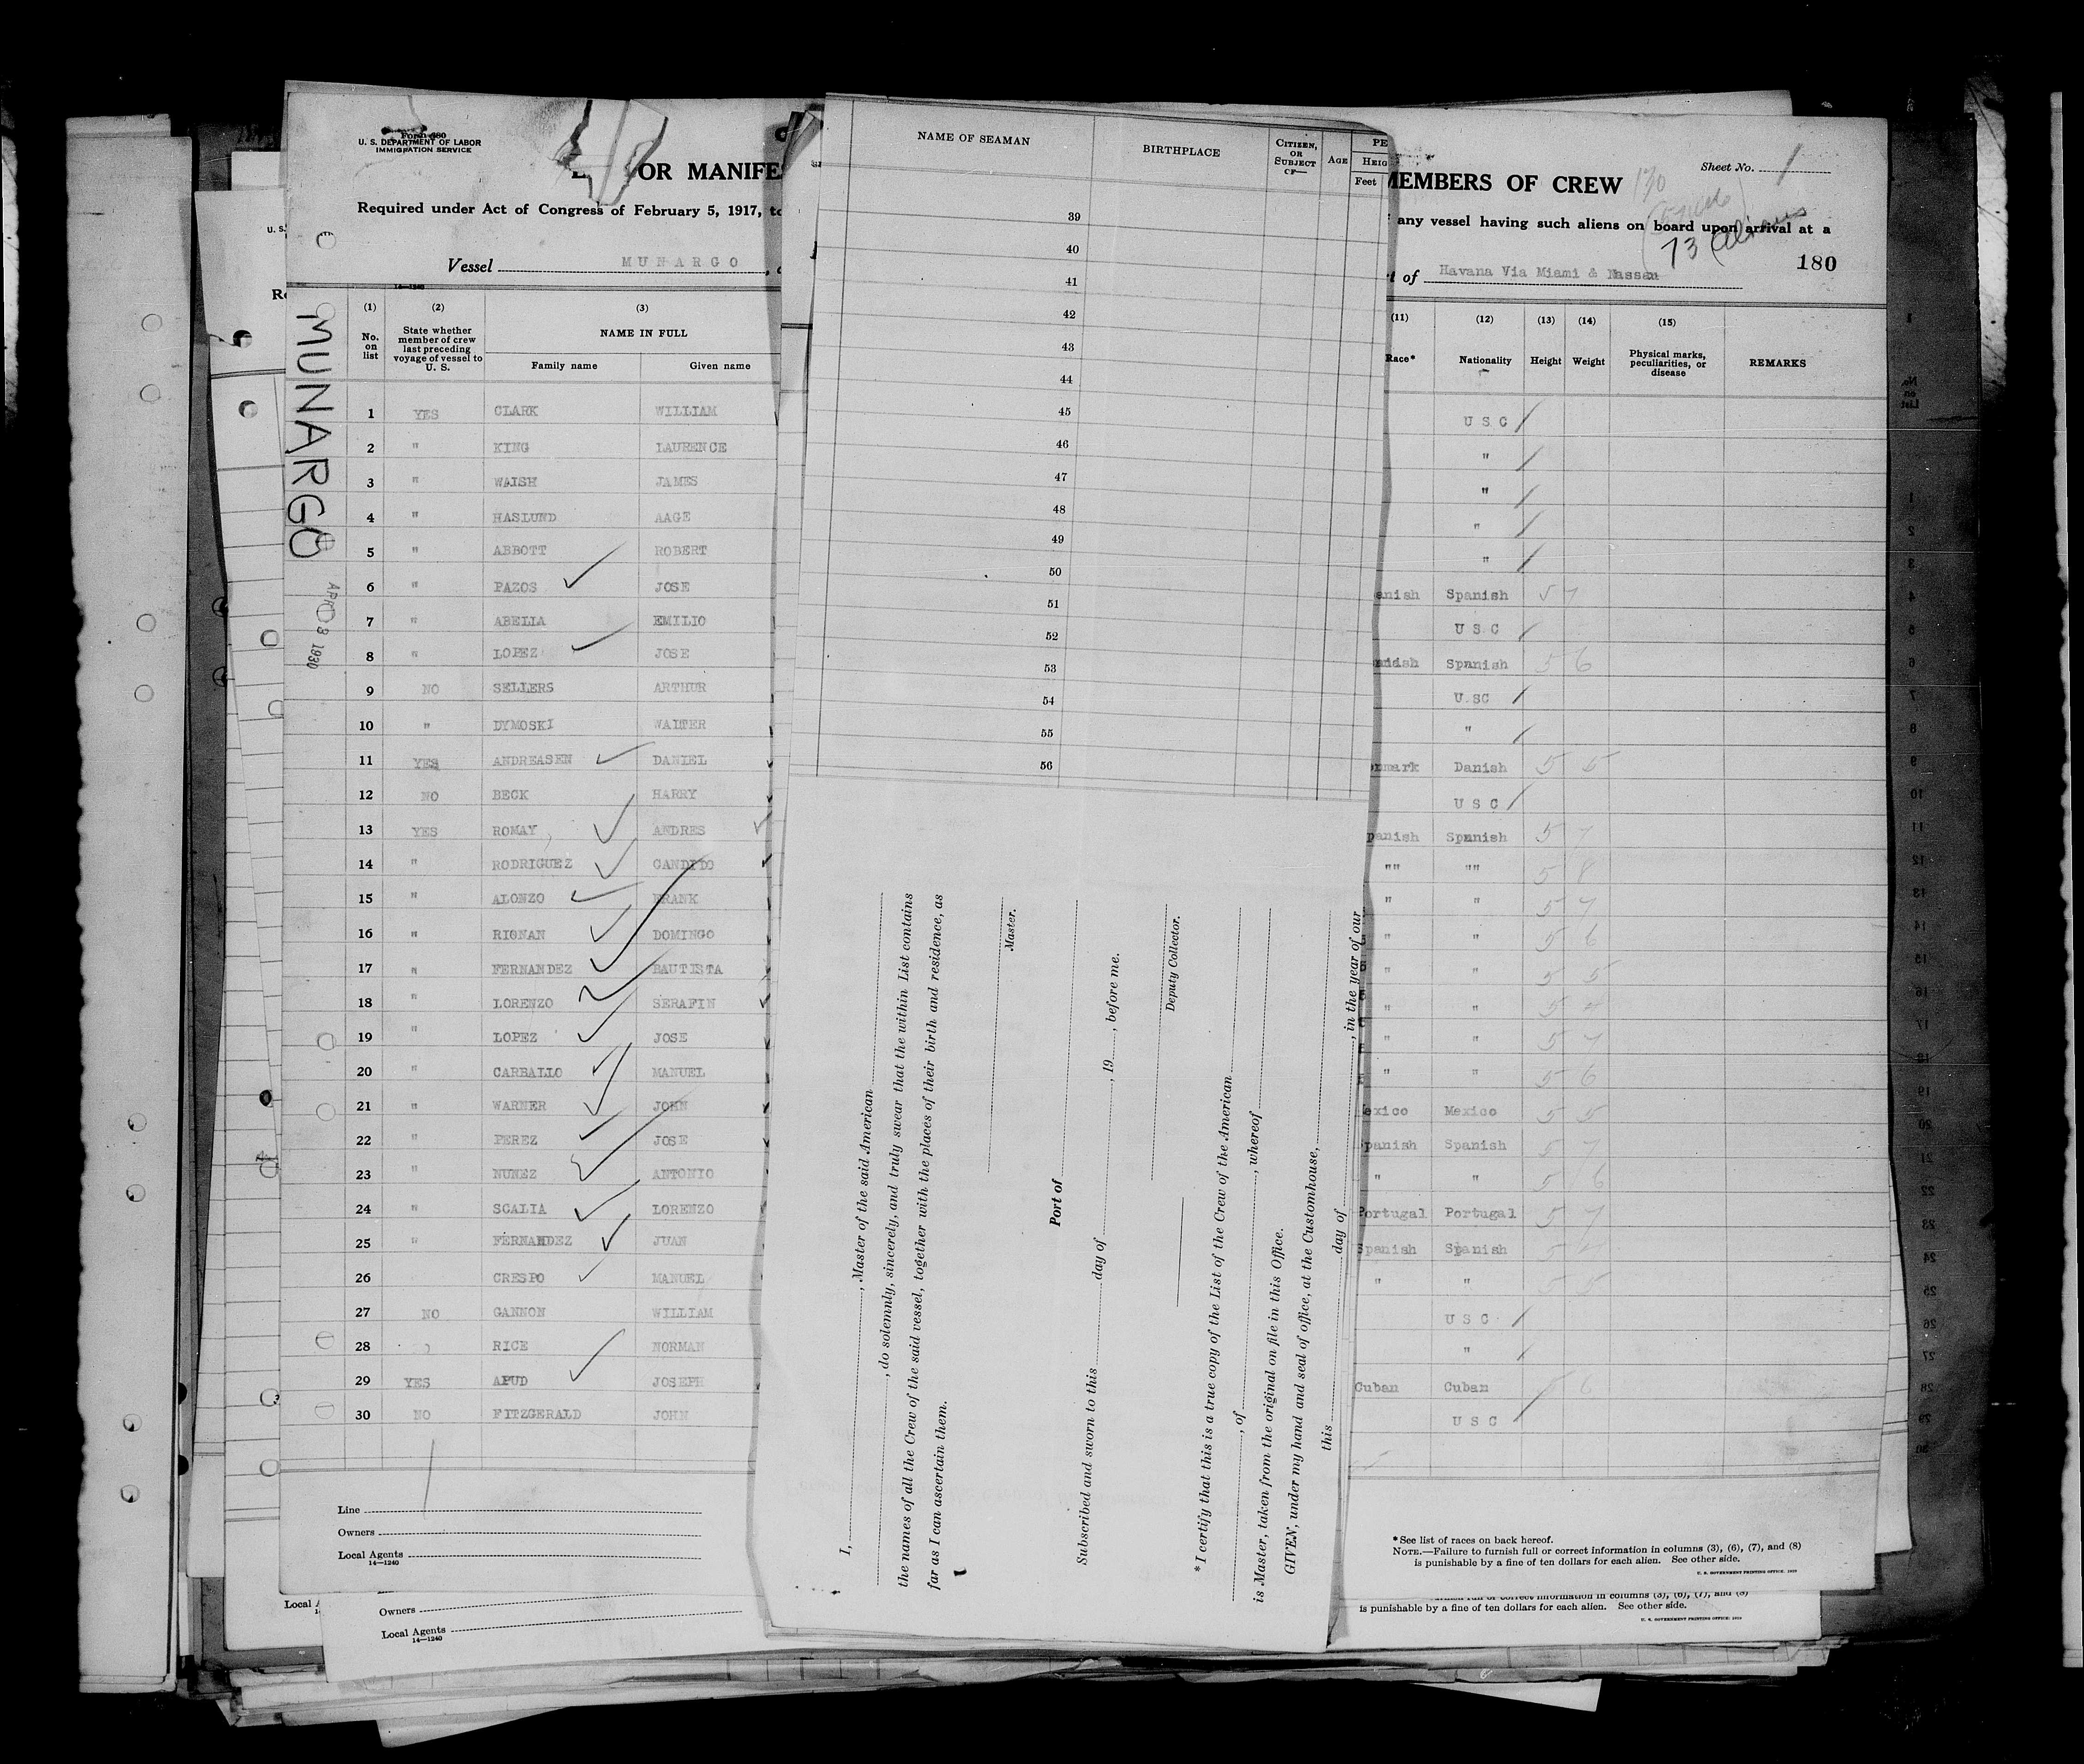 Form 680
U. S. DEPARTMENT OF LABOR
IMMIGRATION SERVICE
OR MANIFE
Required under Act of Congress of February 5, 1917, to
Vessel MUNARGO
MUNARGO
APR 8 1930
(1) (2) (3)
No. on list
State whether member of crew last preceding voyage of vessel to U. S.
NAME IN FULL
Family name Given name
1 YES CLARK WILLIAM
2 " KING LAURENCE
3 " WAISH JAMES
4 " HASLUND AAGE
5 " ABBOTT ROBERT
6 " PAZOS JOSE
7 " ABELLA EMILIO
8 " LOPEZ JOSE
9 NO SELLERS ARTHUR
10 " DYMOSKI WALTER
11 YES ANDREASEN DANIEL
12 NO BECK HARRY
13 YES ROMAY ANDRES
14 " RODRIGUEZ CANDIDO
15 " ALONZO FRANK
16 " DOMINGO
17 " FERNANDEZ BAUTISTA
18 " LORENZO SERAFIN
19 " LOPEZ JOSE
20 " CARBALLO MANUEL
21 " WARNER JOHN
22 " PEREZ JOSE
23 " NUNEZ ANTONIO
24 " SCALIA LORENZO
25 " FERNANDEZ JUAN
26 CRESPO MANUEL
27 NO GANNON WILLIAM
28 RICE NORMAN
29 YES APUD JOSEPH
30 NO FITZGERALD JOHN
Line
Owners
Local Agents
14—1240
Owners
Local Agents
14—1240
NAME OF SEAMAN BIRTHPLACE CITIZEN, OR SUBJECT OF— AGE HEIG
Feet
39
40
41
42
43
44
45
46
47
48
49
50
51
52
53
54
55
56
I, , Master of the said American
, do solemnly, sincerely, and truly swear that the within List contains
the names of all the Crew of the said vessel, together with the places of their birth and residence, as
far as I can ascertain them.
Master.
Port of
Subscribed and sworn to this day of , 19 , before me.
Deputy Collector.
* I certify that this is a true copy of the List of the Crew of the American
, of , whereof
is Master, taken from the original on file in this Office.
GIVEN, under my hand and seal of office, at the Customhouse,
this day of , in the year of our
MEMBERS OF CREW
Sheet No. 1
any vessel having such aliens on board upon arrival at a
73 Aliens
180
of Havana Via Miami & Nassau
(11) (12) (13) (14) (15)
Race* Nationality Height Weight Physical marks, peculiarities, or disease REMARKS
U S C
"
"
"
"
anish Spanish 5 7
U S C
Spanish 5 6
U.SC
"
nmark Danish 5 5
U S C
panish Spanish 5 7
"" "" 5 8
" " 5 7
" " 5 6
" " 5 5
" " 5 4
" " 5 7
" " 5 6
exico Mexico 5 5
panish Spanish 5 7
" " 5 6
Portugal Portugal 5 7
Spanish Spanish 5 4
" " 5 5
U S C
"
Cuban Cuban 6
U S C
* See list of races on back hereof.
NOTE.—Failure to furnish full or correct information in columns (3), (6), (7), and (8)
is punishable by a fine of ten dollars for each alien. See other side.
is punishable by a fine of ten dollars for each alien. See other side.